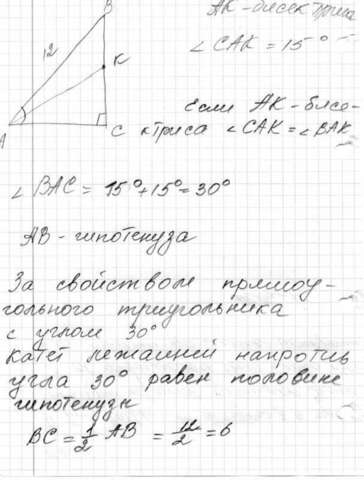 B
АК-биссектриса
12
∠CAK = 15°
К
Если АК-бисе-
A
C
ктриса ∠CAK = ∠BAK
∠BAC = 15°+15° = 30°
AB - гипотенуза
За свойством прямоу-
гольного триугольника
с углом 30°
катет лежащий напротив
угла 30° равен половине
гипотенузы
BC = 1/2 AB = 12/2 = 6